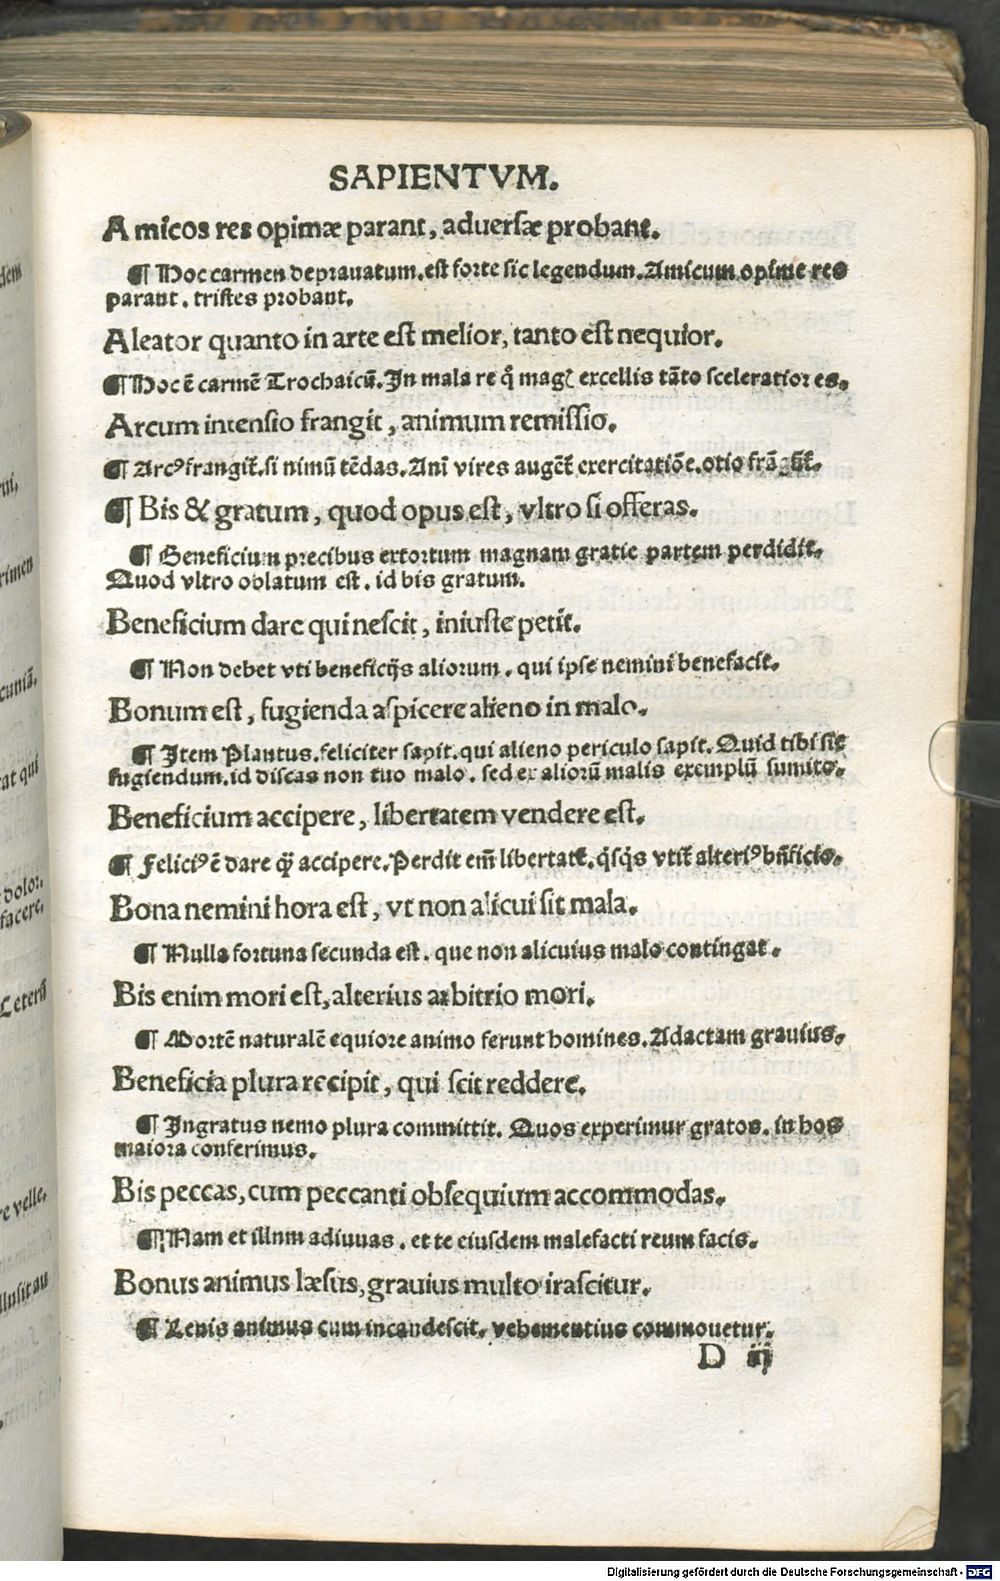 SAPIENTVM.
Amicos res opimæ parant, aduersæ probant.
¶ Hoc carmen deprauatum. est forte sic legendum. Amicum opime res
parant. tristes probant.
Aleator quanto in arte est melior, tanto est nequior.
¶ Hoc ē carmē Trochaicū. In mala re q̃ magꝭ excellis tāto sceleratior es.
Arcum intensio frangit, animum remissio.
¶ Arcꝰ frangit̃. si nimiū tēdas. Ani vires auget̃ exercitatiōe. otio frāgūt̃.
¶ Bis & gratum, quod opus est, vltro si offeras.
¶ Beneficium precibus extortum magnam gratie partem perdidit.
Quod vltro oblatum est. id bis gratum.
Beneficium dare qui nescit, iniuste petit.
¶ Non debet vti beneficijs aliorum. qui ipse nemini benefacit.
Bonum est, fugienda aspicere alieno in malo.
¶ Item Plantus. feliciter sapit. qui alieno periculo sapit. Quid tibi sit
fugiendum. id discas non tuo malo. sed ex aliorū malis exemplū sumito.
Beneficium accipere, libertatem vendere est.
¶ Feliciꝰ ē dare q̃ accipere. Perdit em̄ libertatē. q̇sq̇s vtit̃ alteriꝰ bn̄ficio.
Bona nemini hora est, vt non alicui sit mala.
¶ Nulla fortuna secunda est. que non alicuius malo contingat.
Bis enim mori est, alterius arbitrio mori.
¶ Mortē naturalē equiore animo ferunt homines. Adactam grauius.
Beneficia plura recipit, qui scit reddere.
¶ Ingratus nemo plura committit. Quos experimur gratos. in hos
maiora conferimus.
Bis peccas, cum peccanti obsequium accommodas.
¶ Nam et illnm adiuuas. et te eiusdem malefacti reum facis.
Bonus animus læsus, grauius multo irascitur.
¶ Lenis animus cum incandescit. vehementius commouetur.
D iij
Digitalisierung gefördert durch die Deutsche Forschungsgemeinschaft - DFG